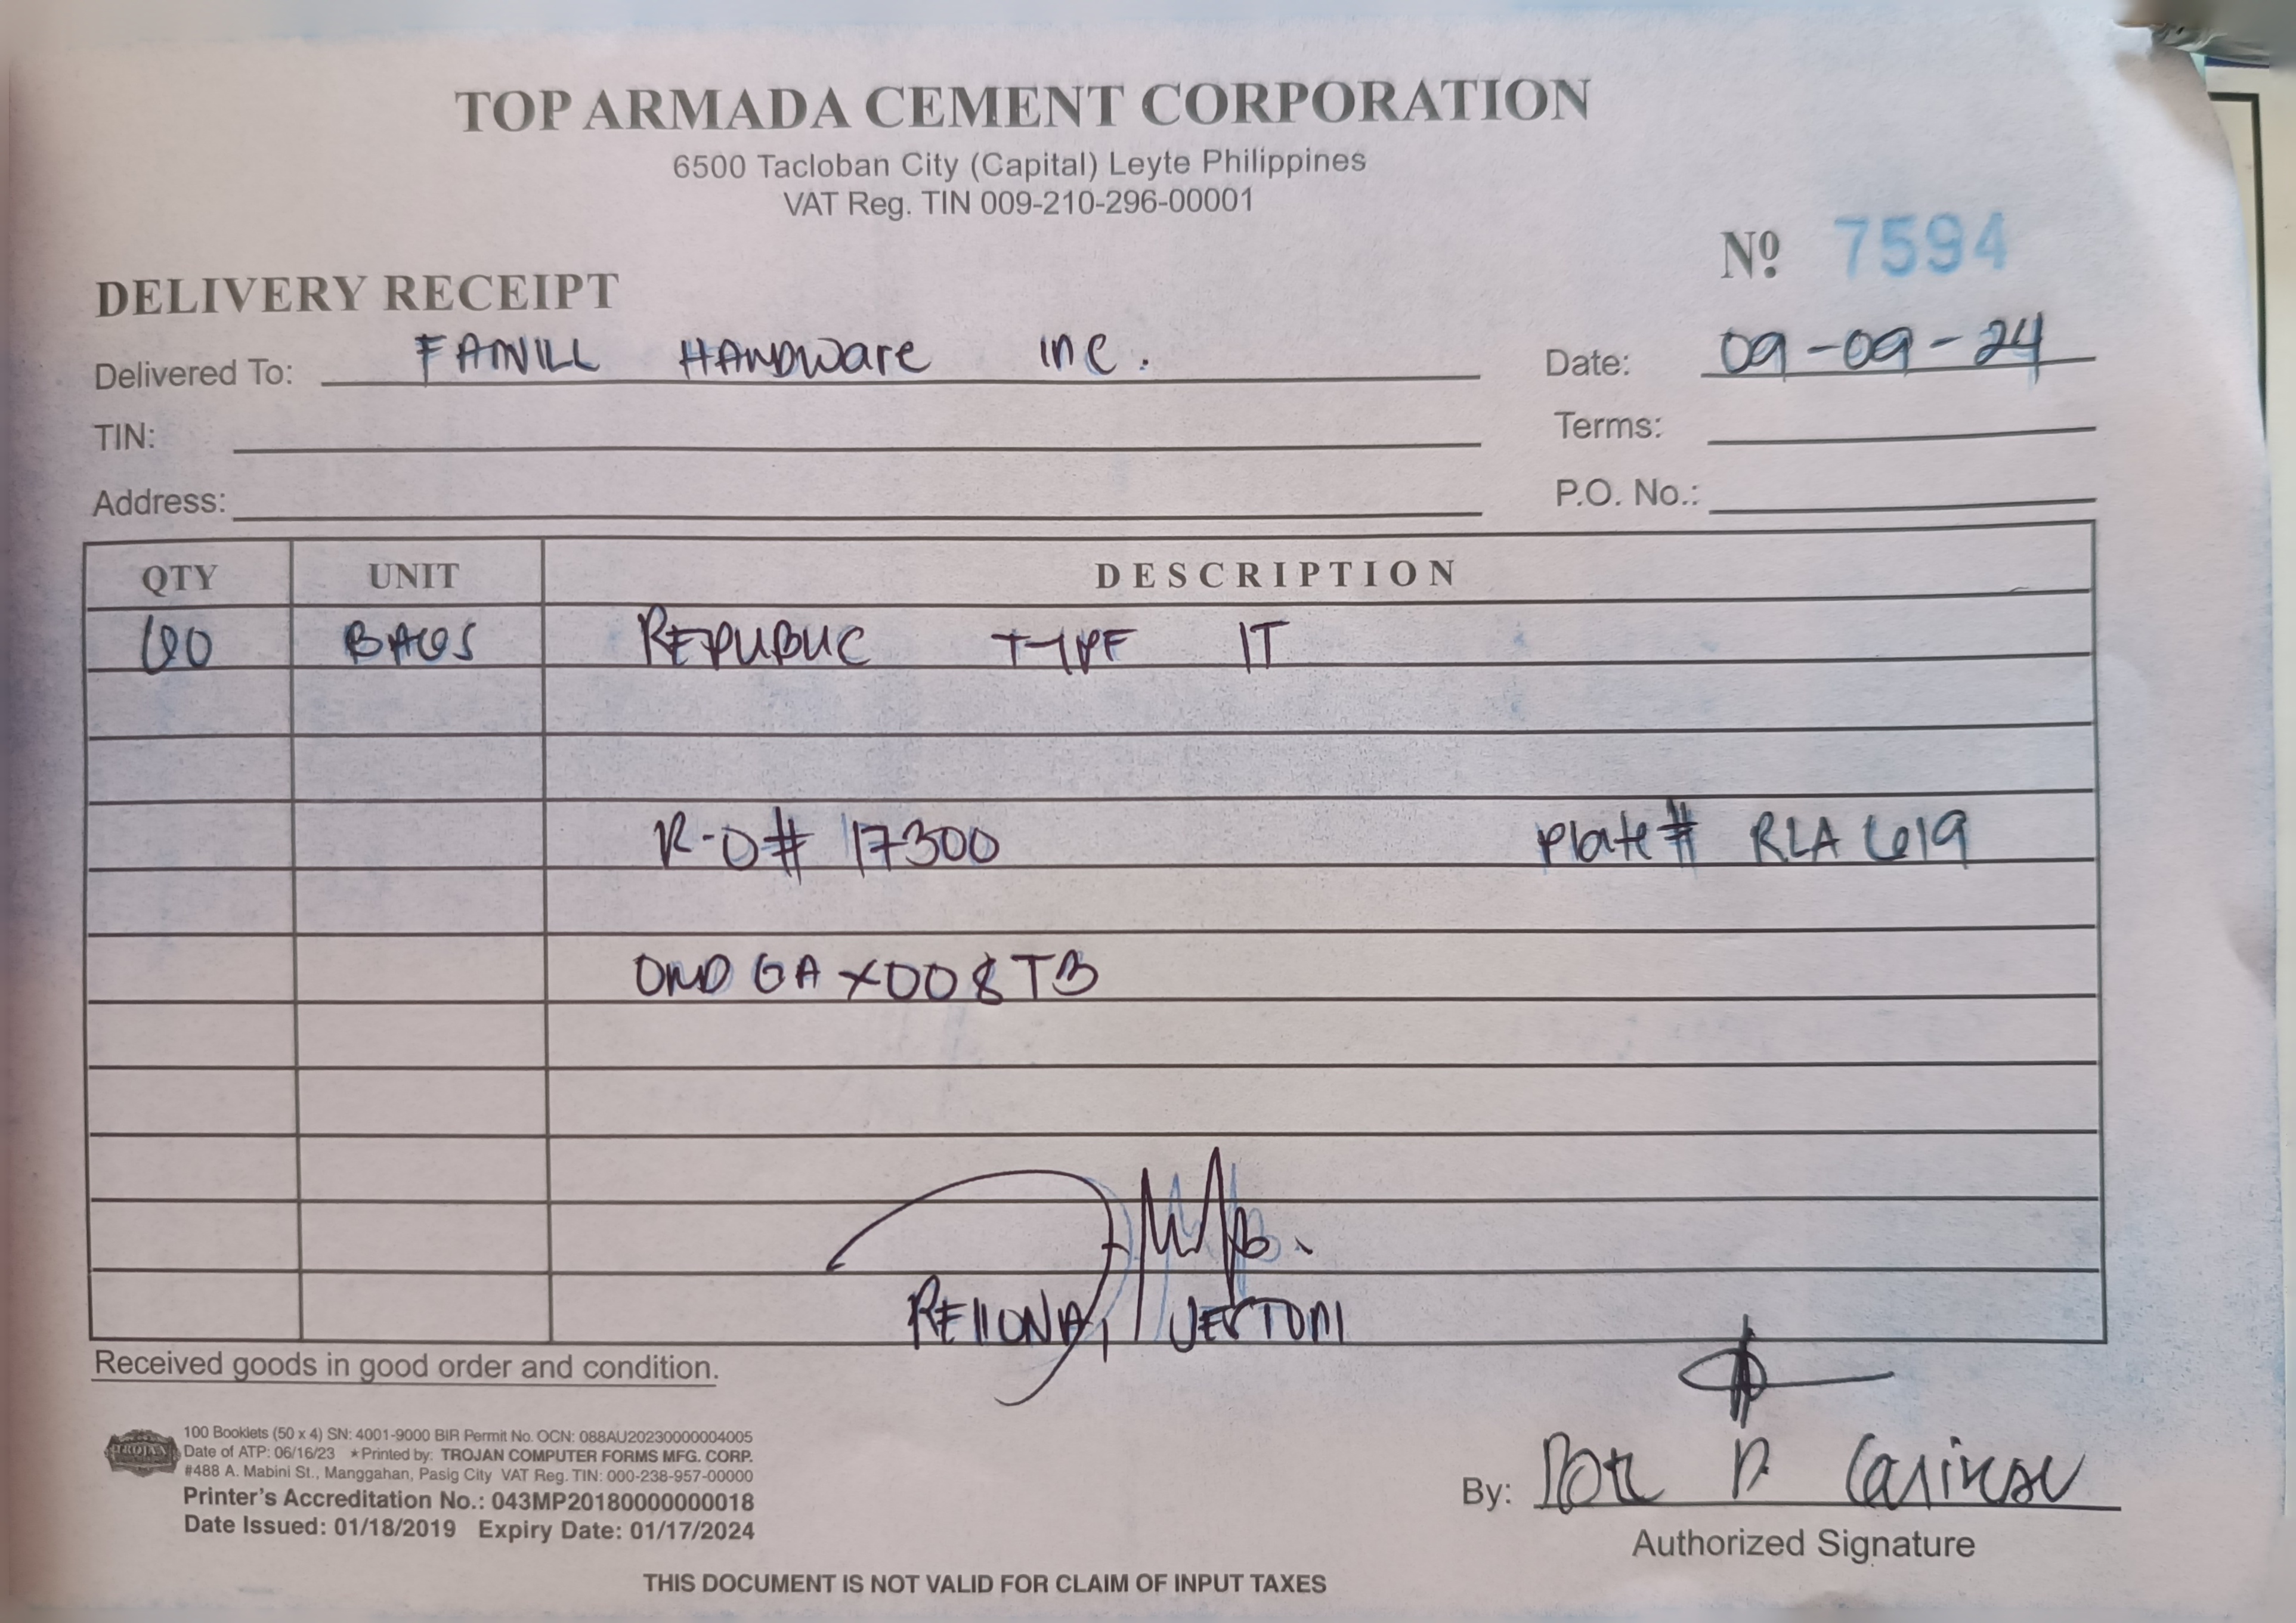 TOP ARMADA CEMENT CORPORATION
6500 Tacloban City (Capital) Leyte Philippines
VAT Reg. TIN 009-210-296-00001
Nº 7594
DELIVERY RECEIPT
Delivered To: FAMILL HARDWare inc.
Date: 09-09-24
TIN:
Terms:
Address:
P.O. No.:
QTY UNIT DESCRIPTION
60 BAGS REPUBLIC TYPE IT
R-O# 17300 Plate# RLA 619
GA X008TB
Received goods in good order and condition.
TROJAN
100 Booklets (50 x 4) SN: 4001-9000 BIR Permit No. OCN: 088AU20230000004005
Date of ATP: 06/16/23 ★Printed by: TROJAN COMPUTER FORMS MFG. CORP.
#488 A. Mabini St., Manggahan, Pasig City VAT Reg. TIN: 000-238-957-00000
Printer's Accreditation No.: 043MP20180000000018
Date Issued: 01/18/2019 Expiry Date: 01/17/2024
By:
Authorized Signature
THIS DOCUMENT IS NOT VALID FOR CLAIM OF INPUT TAXES